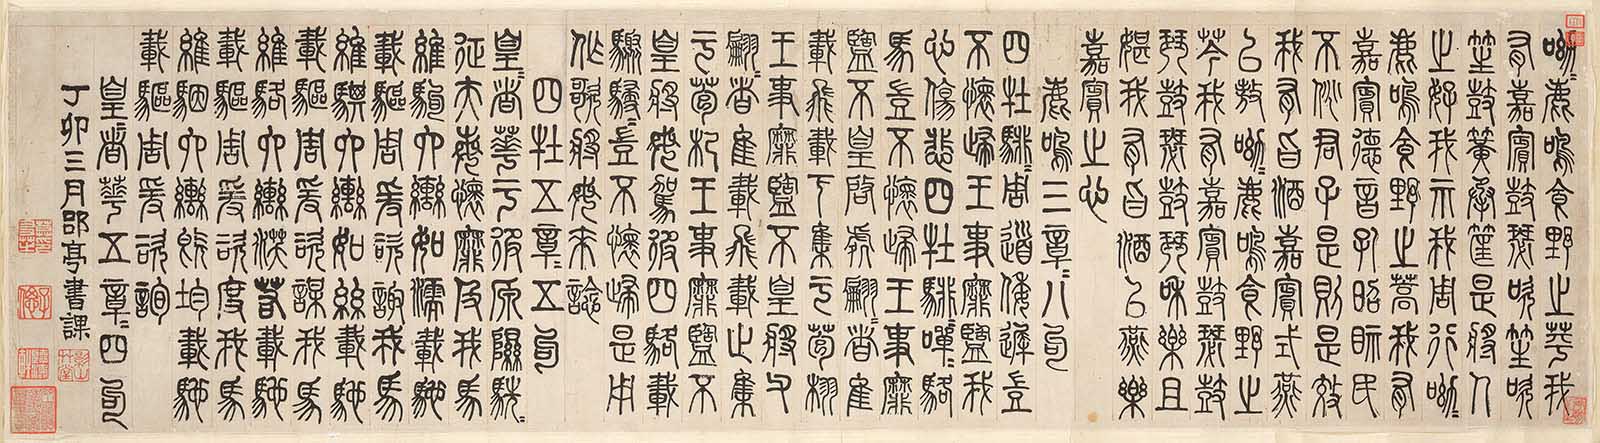 呦〻鹿鳴食野之苹我
有嘉賓鼓瑟吹笙吹
笙鼓簧承筐是將人
之好我示我周行呦〻
鹿鳴食野之蒿我有
嘉賓德音孔昭視民
不佻君子是則是效
我有旨酒嘉賓式燕
以敖呦〻鹿鳴食野之
芩我有嘉賓鼓瑟鼓
琴鼓瑟鼓琴和樂且
媅我有旨酒以燕樂
嘉賓之心
鹿鳴三章〻八句
四牡騑〻周道倭遲豈
不懷歸王事靡盬我
心傷悲四牡騑〻嘽〻駱
馬豈不懷歸王事靡
盬不皇啓處翩〻者隹
載飛載下集于苞栩
王事靡盬不皇將父
翩〻者隹載飛載止集
于苞杞王事靡盬不
皇將母駕彼四駱載
驟駸〻豈不懷歸是用
作歌將母來諗
四牡五章〻五句
皇〻者華于彼原隰駪〻
征夫每懷靡及我馬
維駒六轡如濡載馳
載驅周爰咨諏我馬
維騏六轡如絲載馳
載驅周爰咨謀我馬
維駱六轡沃若載馳
載驅周爰咨度我馬
維駰六轡既均載馳
載驅周爰咨詢
皇〻者華五章〻四句
丁卯三月郘亭書課